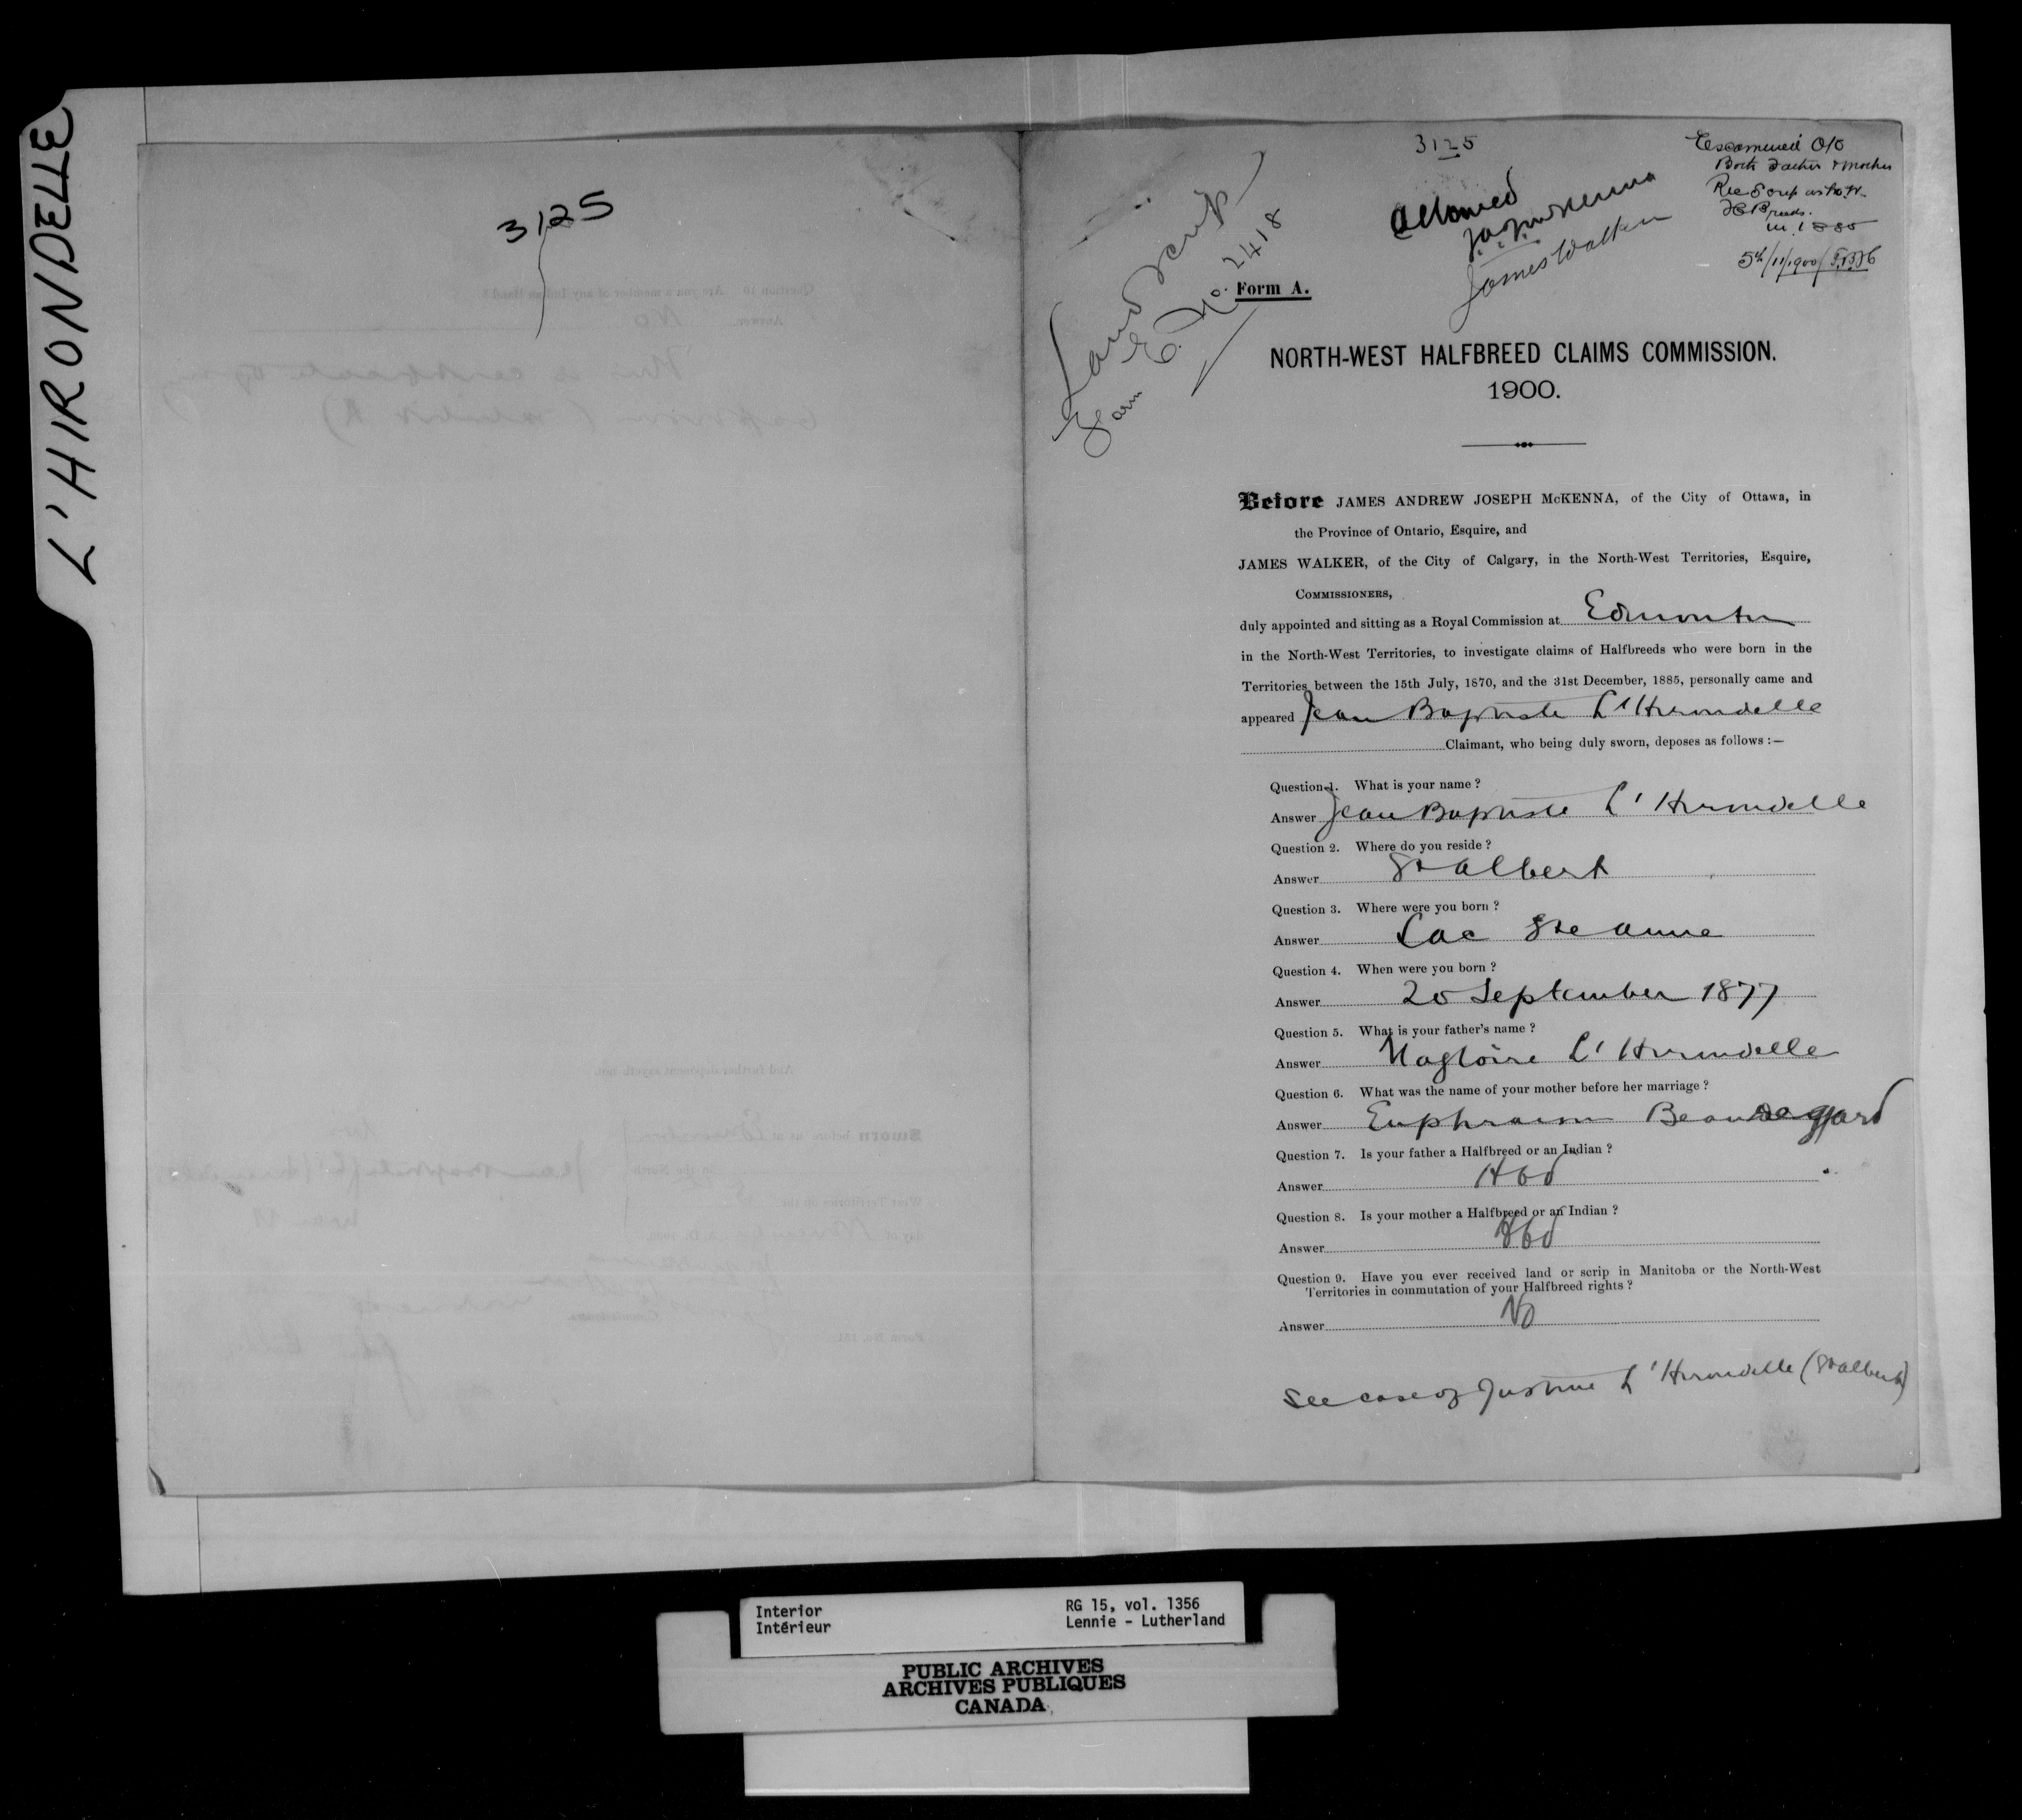 L'HIRONDELLE
3125
3125
Land Scrip
Form E. No. 2418
Allowed
J.A.J. McKenna
James Walker
Escamined O/C
Both Father & Mother
Rec Scrip as N.W.
H Breeds.
in 1885
5th/11/1900
Form A.
NORTH-WEST HALFBREED CLAIMS COMMISSION.
1900.
Before JAMES ANDREW JOSEPH McKENNA, of the City of Ottawa, in
the Province of Ontario, Esquire, and
JAMES WALKER, of the City of Calgary, in the North-West Territories, Esquire,
COMMISSIONERS,
duly appointed and sitting as a Royal Commission at Edmonton
in the North-West Territories, to investigate claims of Halfbreeds who were born in the
Territories between the 15th July, 1870, and the 31st December, 1885, personally came and
appeared Jean Baptiste L'Hirondelle
Claimant, who being duly sworn, deposes as follows :—
Question 1. What is your name ?
Answer Jean Baptiste L'Hirondelle
Question 2. Where do you reside ?
Answer St Albert
Question 3. Where were you born ?
Answer Lac Ste Anne
Question 4. When were you born ?
Answer 20 September 1877
Question 5. What is your father's name ?
Answer Magloire L'Hirondelle
Question 6. What was the name of your mother before her marriage ?
Answer Euphrasim
Question 7. Is your father a Halfbreed or an Indian ?
Answer Hbd
Question 8. Is your mother a Halfbreed or an Indian ?
Answer Hbd
Question 9. Have you ever received land or scrip in Manitoba or the North-West
Territories in commutation of your Halfbreed rights ?
Answer No
See case of Justine L'Hirondelle (St Albert)
Interior RG 15, vol. 1356
Intérieur Lennie - Lutherland
PUBLIC ARCHIVES
ARCHIVES PUBLIQUES
CANADA